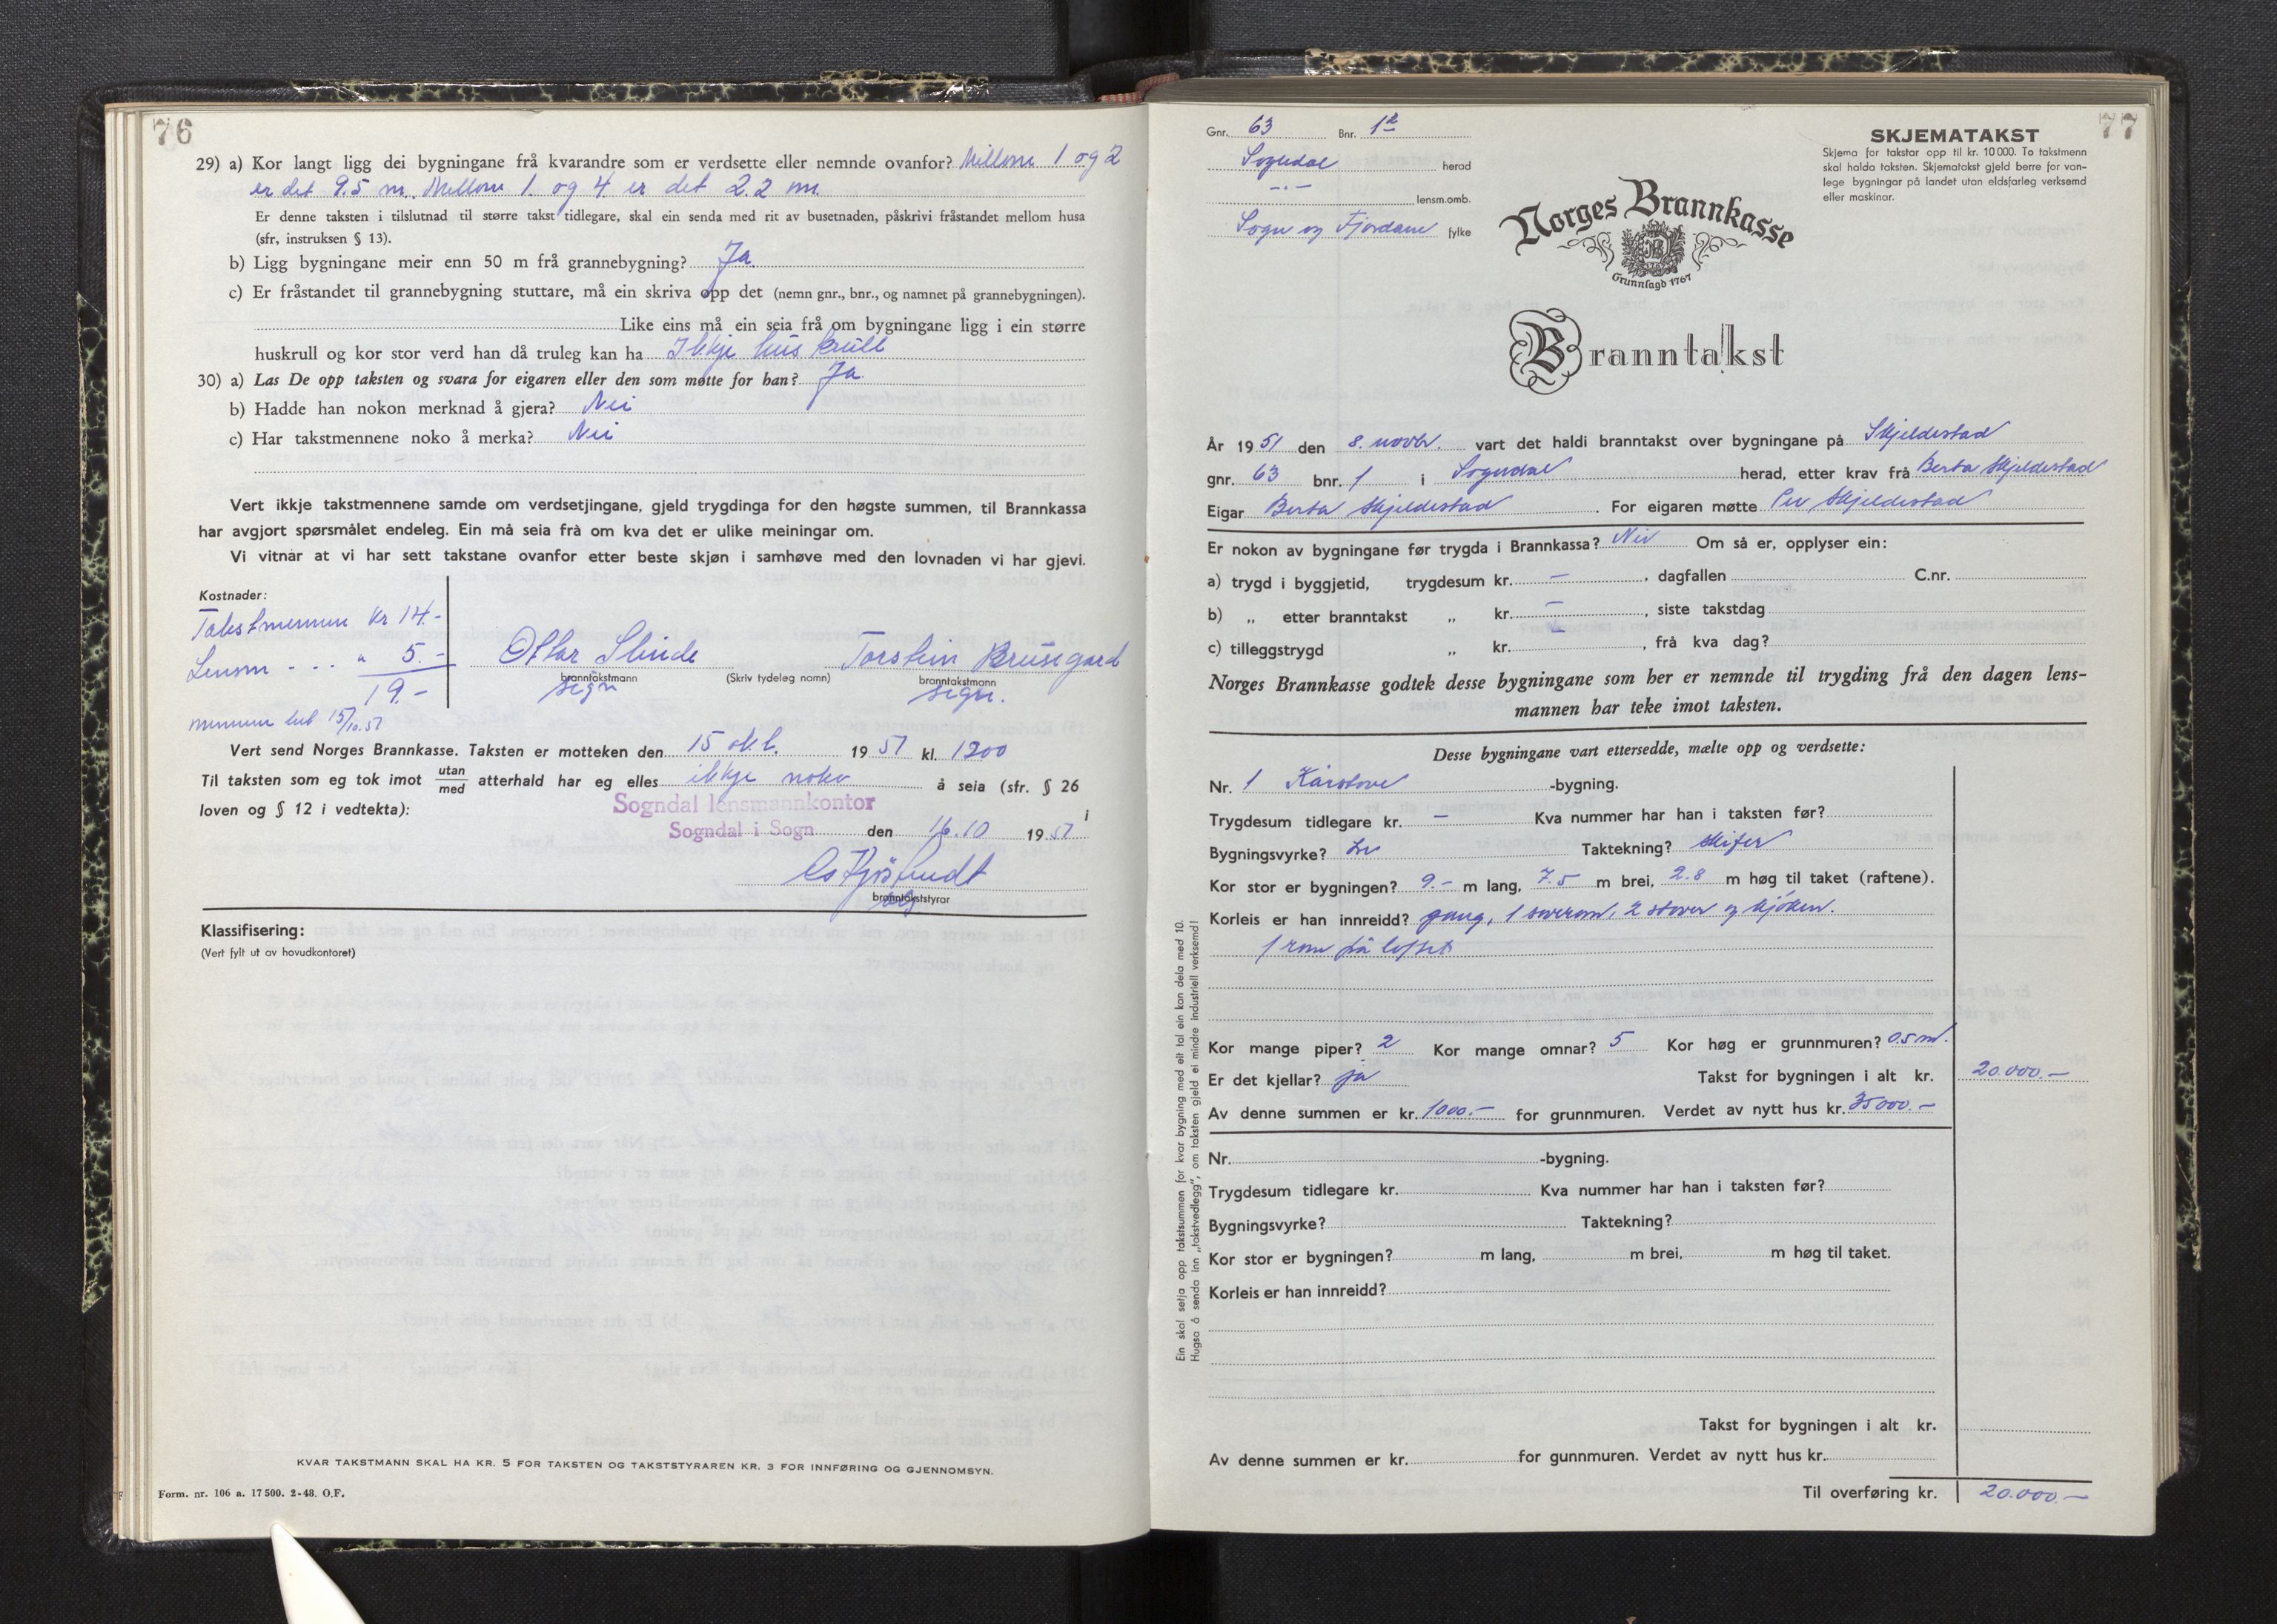 76
29) a) Kor langt ligg dei bygningane frå kvarandre som er verdsette eller nemnde ovanfor? Millom 1 og 2
er det 9.5 m. Mellom 1. og 4 er det 2.2 m.
Er denne taksten i tilslutnad til større takst tidlegare, skal ein senda med rit av busetnaden, påskrivi fråstandet mellom husa
(sfr. instruksen § 13).
b) Ligg bygningane meir enn 50 m frå grannebygning? Ja.
c) Er fråstandet til grannebygning stuttare, må ein skriva opp det (nemn gnr., bnr., og namnet på grannebygningen).
Like eins må ein seia frå om bygningane ligg i ein større
huskrull og kor stor verd han då truleg kan ha Ikkje huskrull
30) a) Las De opp taksten og svara for eigaren eller den som møtte for han? Ja.
b) Hadde han nokon merknad å gjera? Nei
c) Har takstmennene noko å merka? Nei
Vert ikkje takstmennene samde om verdsetjingane, gjeld trygdinga for den høgste summen, til Brannkassa
har avgjort spørsmålet endeleg. Ein må seia frå om kva det er ulike meiningar om.
Vi vitnar at vi har sett takstane ovanfor etter beste skjøn i samhøve med den lovnaden vi har gjevi.
Kostnader:
Takstmennene kr 14.-
Lensm - . . " 5.-
19.-
Ottar Slinde
Torstein Brusegard
branntakstmann
(Skriv tydeleg namn)
branntakstmann
sign
sign.
15/10.51
Vert send Norges Brannkasse. Taksten er motteken den 15 okt. 1951 kl. 1200
Til taksten som eg tok imot utan/med atterhald har eg elles ikkje noko å seia (sfr. § 26
loven og § 12 i vedtekta):
i
Sogndal lensmannkontor
Sogndal i Sogn den 16.10 1951
branntakststyrar
Klassifisering:
(Vert fylt ut av hovudkontoret)
KVAR TAKSTMANN SKAL HA KR. 5 FOR TAKSTEN OG TAKSTSTYRAREN KR. 3 FOR INNFØRING OG GJENNOMSYN.
Form. nr. 106 a. 17 500. 2-48. O.F.
77
Gnr. 63 Bnr. 12
Sogndal herad
-"- lensm.omb.
Sogn og Fjordane fylke
SKJEMATAKST
Skjema for takstar opp til kr. 10 000. To takstmenn
skal halda taksten. Skjematakst gjeld berre for van-
lege bygningar på landet utan eldsfarleg verksemd
eller maskinar.
Norges Brannkasse
Grunnlagd 1767
Branntakst
År 1951 den 8. novbr. vart det haldi branntakst over bygningane på Skjeldestad
gnr. 63 bnr. 1 i Sogndal herad, etter krav frå Berta Skjeldestad
Eigar Berta Skjeldestad. For eigaren møtte Per Skjeldestad
Er nokon av bygningane før trygda i Brannkassa? Nei Om så er, opplyser ein:
a) trygd i byggjetid, trygdesum kr. –, dagfallen C.nr.
b) „ etter branntakst „ kr. –, siste takstdag
c) tilleggstrygd „ kr. –, frå kva dag?
Norges Brannkasse godtek desse bygningane som her er nemnde til trygding frå den dagen lens-
mannen har teke imot taksten.
Desse bygningane vart ettersedde, mælte opp og verdsette:
Nr. 1 Kårstove -bygning.
Trygdesum tidlegare kr. – Kva nummer har han i taksten før?
Bygningsvyrke? tre Taktekning? skifer
Kor stor er bygningen? 9.- m lang, 7.5 m brei, 2.8 m høg til taket (raftene).
Korleis er han innreidd? gang, 1 soverom, 2 stover og kjøken.
1 rom på loftet
Kor mange piper? 2 Kor mange omnar? 5 Kor høg er grunnmuren? 0.5 m.
Er det kjellar? ja Takst for bygningen i alt kr. 20.000.–
Av denne summen er kr. 1000.– for grunnmuren. Verdet av nytt hus kr. 35000.–
Nr. -bygning.
Trygdesum tidlegare kr. Kva nummer har han i taksten før?
Bygningsvyrke? Taktekning?
Kor stor er bygningen? m lang, m brei, m høg til taket.
Korleis er han innreidd?
Takst for bygningen i alt kr.
Av denne summen er kr. for gunnmuren. Verdet av nytt hus kr.
Til overføring kr. 20.000.–
Ein skal setja opp takstsummen for kvar bygning med eit tal ein kan dela med 10.
Hugsa å senda inn „takstvedlegg", om taksten gjeld ei mindre industriell verksemd!